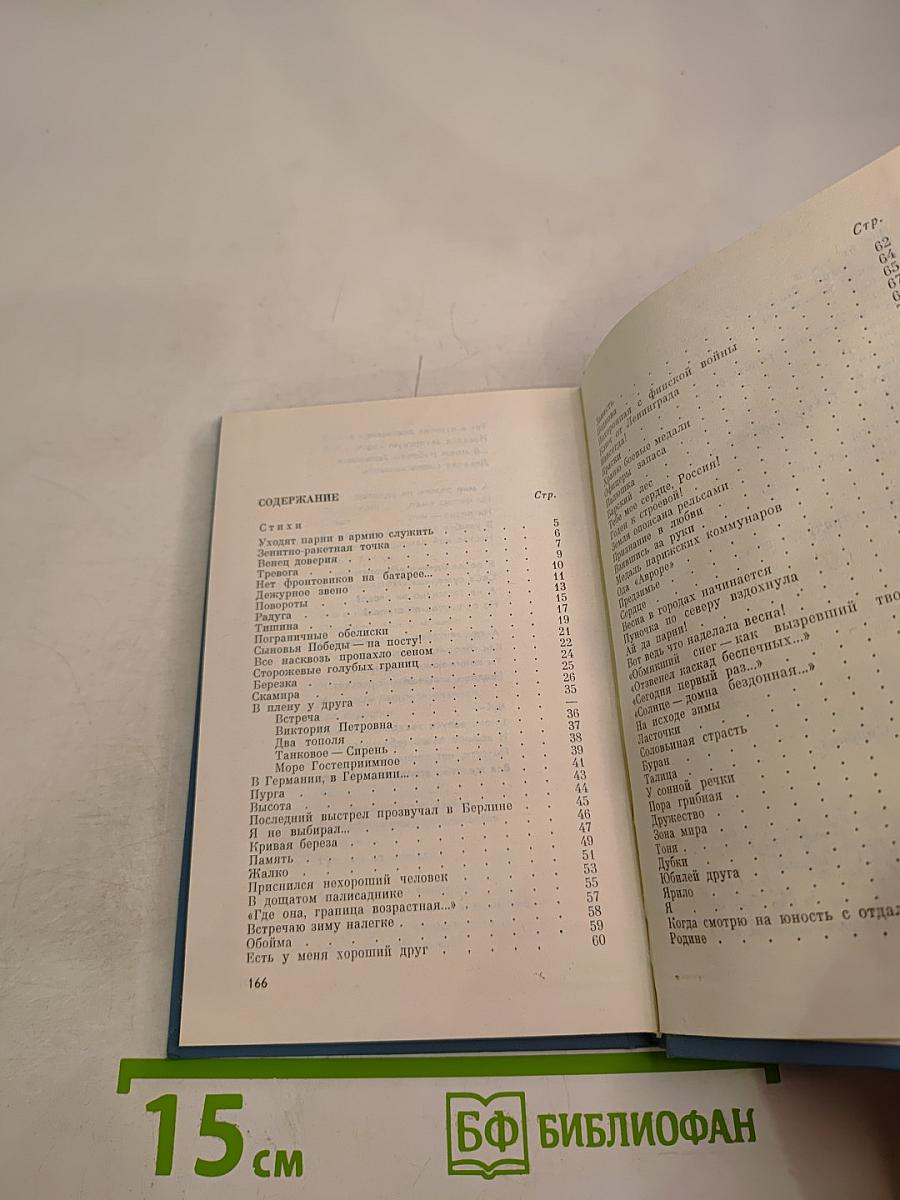 СОДЕРЖАНИЕ
Стр.
Стихи
Уходят парни в армию служить . . . . 5
Зенитно-ракетная точка . . . . 6
Венец доверия . . . . 7
Тревога . . . . 9
Нет фронтовиков на батарее... . . . . 10
Дежурное звено . . . . 11
Повороты . . . . 13
Радуга . . . . 15
Тишина . . . . 17
Пограничные обелиски . . . . 19
Сыновья Победы — на посту! . . . . 21
Все насквозь пропахло сеном . . . . 22
Сторожевые голубых границ . . . . 24
Березка . . . . 25
Скамира . . . . 26
В плену у друга . . . . 35
Встреча . . . . —
Виктория Петровна . . . . 36
Два тополя . . . . 37
Танковое — Сирень . . . . 38
Море Гостеприимное . . . . 39
В Германии, в Германии... . . . . 41
Пурга . . . . 43
Высота . . . . 44
Последний выстрел прозвучал в Берлине . . . . 45
Я не выбирал... . . . . 46
Кривая береза . . . . 47
Память . . . . 49
Жалко . . . . 51
Приснился нехороший человек . . . . 53
В дощатом палисаднике . . . . 55
«Где она, граница возрастная...» . . . . 57
Встречаю зиму налегке . . . . 58
Обойма . . . . 59
Есть у меня хороший друг . . . . 60
166
Стр.
62
64
65
67
с финской войны
от Ленинграда
Краски
Храню боевые медали
Офицеры запаса
Пилотка
Барский лес
Тебе мое сердце, Россия!
Годен к строевой!
Земля опоясана рельсами
Признание в любви
Взявшись за руки
Медаль парижских коммунаров
Ода «Авроре»
Предзимье
Сердце
Весна в городах начинается
Пуночка по северу вздохнула
Ай да парни!
Вот ведь что наделала весна!
«Обмякший снег — как вызревший
«Отзвенел каскад беспечных...»
«Сегодня первый раз...»
«Солнце — домна бездонная...»
На исходе зимы
Ласточки
Соловьиная страсть
Буран
Талица
У сонной речки
Пора грибная
Дружество
Зона мира
Тоня
Дубки
Юбилей друга
Ярило
Я
Когда смотрю на юность с
Родине
15 см
БФ БИБЛИОФАН